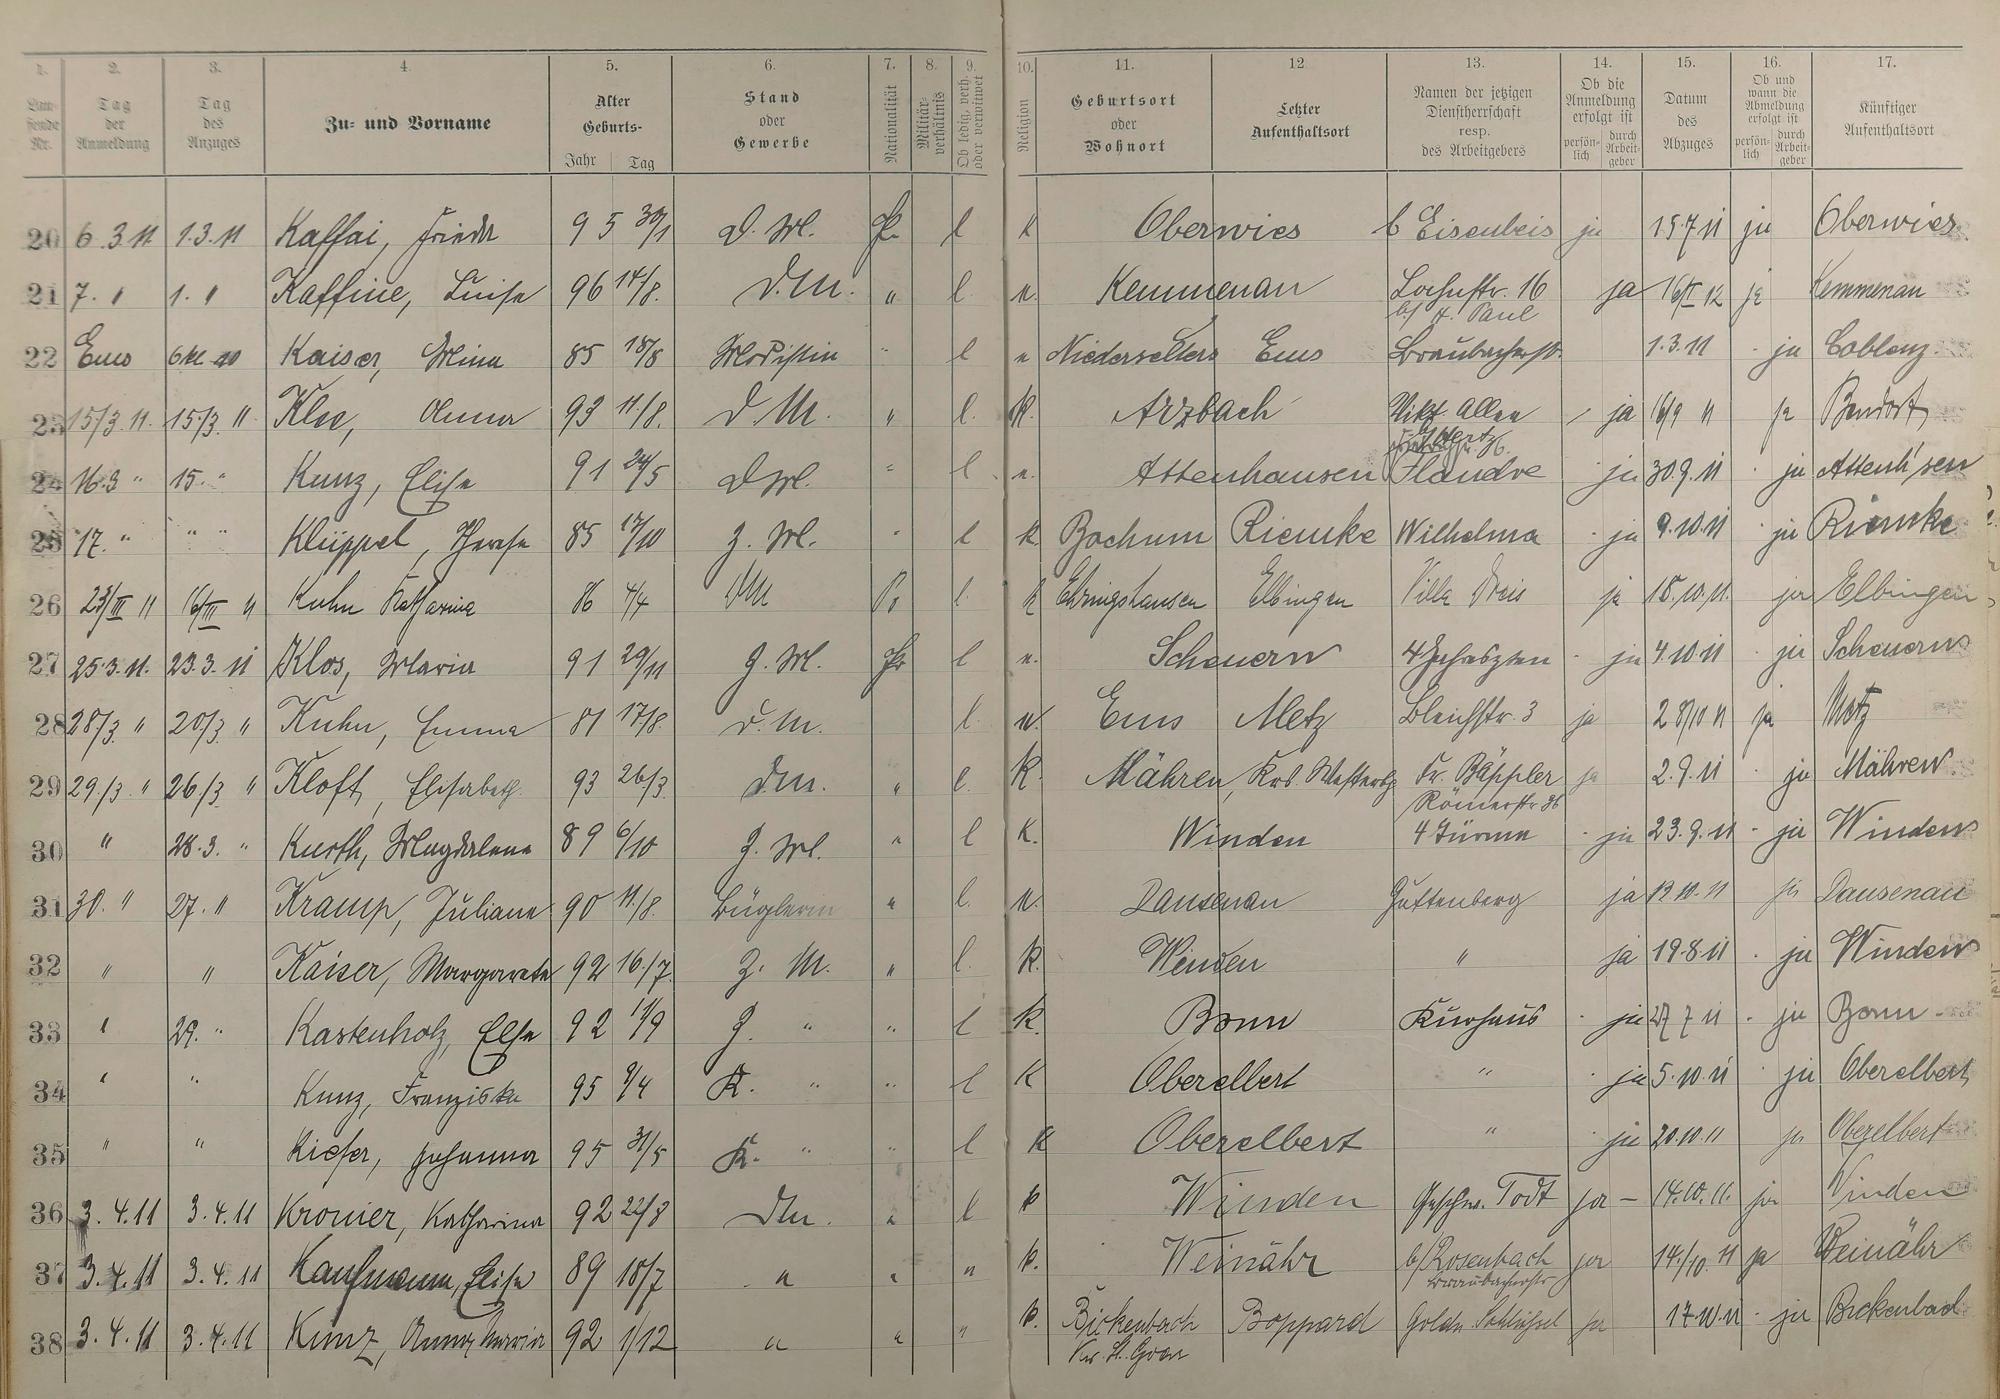 1. 2. 3. 4. 5. 6. 7. 8. 9. 10. 11. 12 13. 14. 15. 16. 17.
Lau-fende Nr. Tag der Anmeldung Tag des Anzuges Zu- und Vorname Alter Geburts- Jahr Tag Stand oder Gewerbe Nationalität Militär-verhältnis Ob ledig, verh. oder verwitwet Religion Geburtsort oder Wohnort Letzter Aufenthaltsort Namen der jetzigen Dienstherrschaft resp. des Arbeitgebers Ob die Anmeldung erfolgt ist persön-lich durch Arbeit-geber Datum des Abzuges Ob und wann die Abmeldung erfolgt ist persön-lich durch Arbeit-geber Künftiger Aufenthaltsort
20 6.3.11. 1.3.11 Kaffai, Frieda 95 30/1 D. M. Pr. l k Oberwies b Eisenbeis ja 15.7.11 ja Oberwies
21 7. " 1. " Kaffine, Luise 96 14/8. D.M. " l. e. Kemmenau 16 ja 16/I 12 ja Kemmenau
b/ Paul
22 Ems Kaiser, Mina 85 18/8 Modistin " l e Niederselters Ems Braubacherstr. 1.3.11 ja Coblenz.
23 15/3. 11. 15./3. 11. Klee, Anna 93 11./8. D. M. " l. K. Arzbach Vikt. Allee ja 16/9 11 ja Bendorf
24 16.3 " 15. " Kunz, Elise 91 24/5 D M. " l e. Attenhausen Flandre ja 30.9.11 ja Attenh'sen
25 17. " " " Klüppel, Therese 85 17/10 Z. M. " l k. Bochum Riemke Wilhelma ja 9.10.11 ja Riemke
26 23/III 11 16/III 11 Kuhn Katharina 86 4/4 Pr l. k Elbingen Villa ja 15.10.11. ja Elbingen
27 25.3.11. 23.3.11 Klos, Maria 91 29/11 Z. M. Pr l e. Scheuern 4 Jahreszten ja 4.10.11 ja Scheuern
28 28/3. " 20/3. " Kuhn, Emma 81 17/8. D. M. l. e. Ems Metz Bleichstr. 3 ja 28/10 11 ja Metz
29 29./3. " 26./3 " Kloft, Elisabeth 93 26/3. D M. " l. K. Mähren, Krs. Westerbg Fr. Bäppler ja 2.9.11 ja Mähren
Römerstr 36
30 " 28.3. " Kurth, Magdalena 89 6/10 Z. M. " l K. Winden 4 Türme ja 23.9.11 ja Winden
31 30. " 27. " Kramp, Juliane 90 11./8. Büglerin " l. e. Dausenau Guttenberg ja ja Dausenau
32 " " Kaiser, Margareta 92 16./7. Z. M. " l. K. Winden " ja 19.8.11 ja Winden
33 " 29. " Kastenholz, Else 92 Z. " " l K. Bonn Kurhaus ja 27 7 11 ja Bonn
34 " " Kunz, Franziska 95 9/4 K. " " l K Oberelbert " ja 5.10.11 ja Oberelbert
35 " " Kiefer, Johanna 95 31/5 K. " " l K Oberelbert " ja 20.10.11 ja Oberelbert
36 3.4.11 3.4.11 Kronier, Katharina 92 22/8 D M. " l k Winden Geschw. Todt ja – 14.10.11. ja Winden
37 3.4.11 3.4.11 Kaufmann, Elise 89 18/7 " " " k. Weinähr b/ Rosenbach ja 14./10. 11 ja Weinähr
Braubacherstr
38 3.4.11 3.4.11 Kunz, Anna Maria 92 1/12 " " " k. Bickenbach Boppard Goldn. Schlüssel ja 17.10.11 ja Bickenbach
Kr. St. Goar